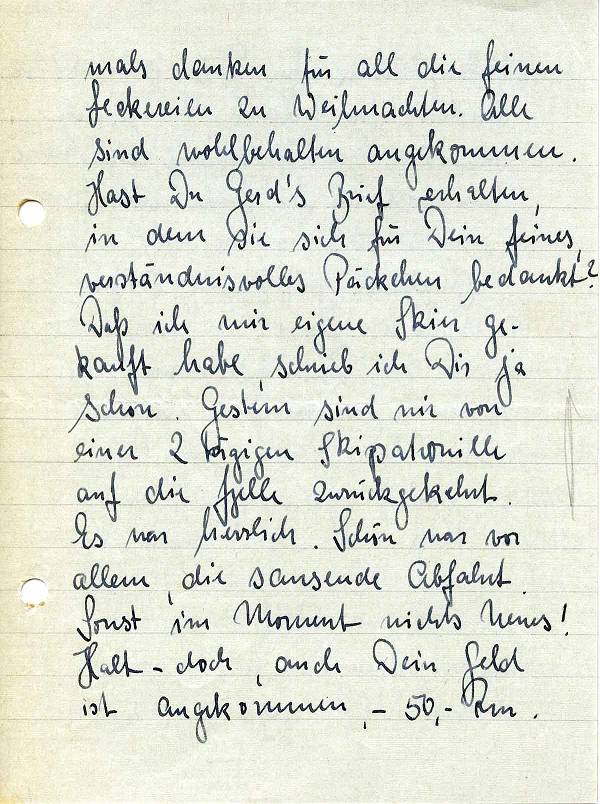 mals danken für all die feinen
Leckereien zu Weihnachten. Alle
sind wohlbehalten angekommen.
Hast Du Gerd's Brief erhalten,
in dem sie sich für Dein feines,
verständnisvolles Päckchen bedankt?
Daß ich mir eigene Skier ge-
kauft habe, schrieb ich Dir ja
schon. Gestern sind wir von
einer 2 tägigen Skipatrouille
auf die Fjelle zurückgekehrt.
Es war herrlich. Schön war vor
allem, die sausende Abfahrt.
Sonst im Moment nichts Neues!
Halt - doch, auch Dein Geld
ist angekommen, - 50,- Rm.